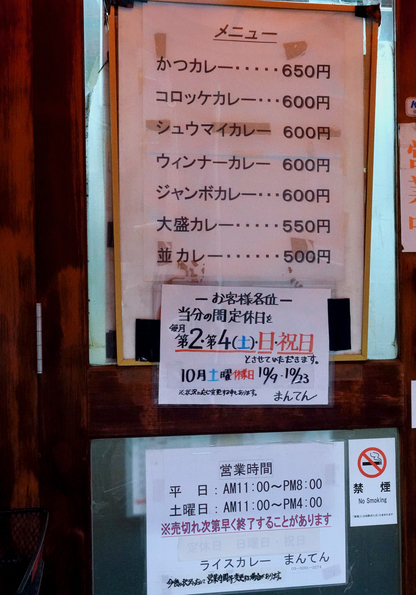 メニュー
かつカレー・・・・・650円
コロッケカレー・・・600円
シュウマイカレー 600円
ウィンナーカレー 600円
ジャンボカレー・・・600円
大盛カレー・・・・・550円
並カレー・・・・・・500円
ーお客様各位ー
当分の間定休日を
毎月
第2・第4(土)・日・祝日
とさせていただきます。
10月土曜休業日 10/9・10/23
まんてん
営業時間
平 日:AM11:00〜PM8:00
土曜日:AM11:00〜PM4:00
※売切れ次第早く終了することがあります
定休日 日曜日・祝日
ライスカレー まんてん
禁煙
No Smoking
営業中